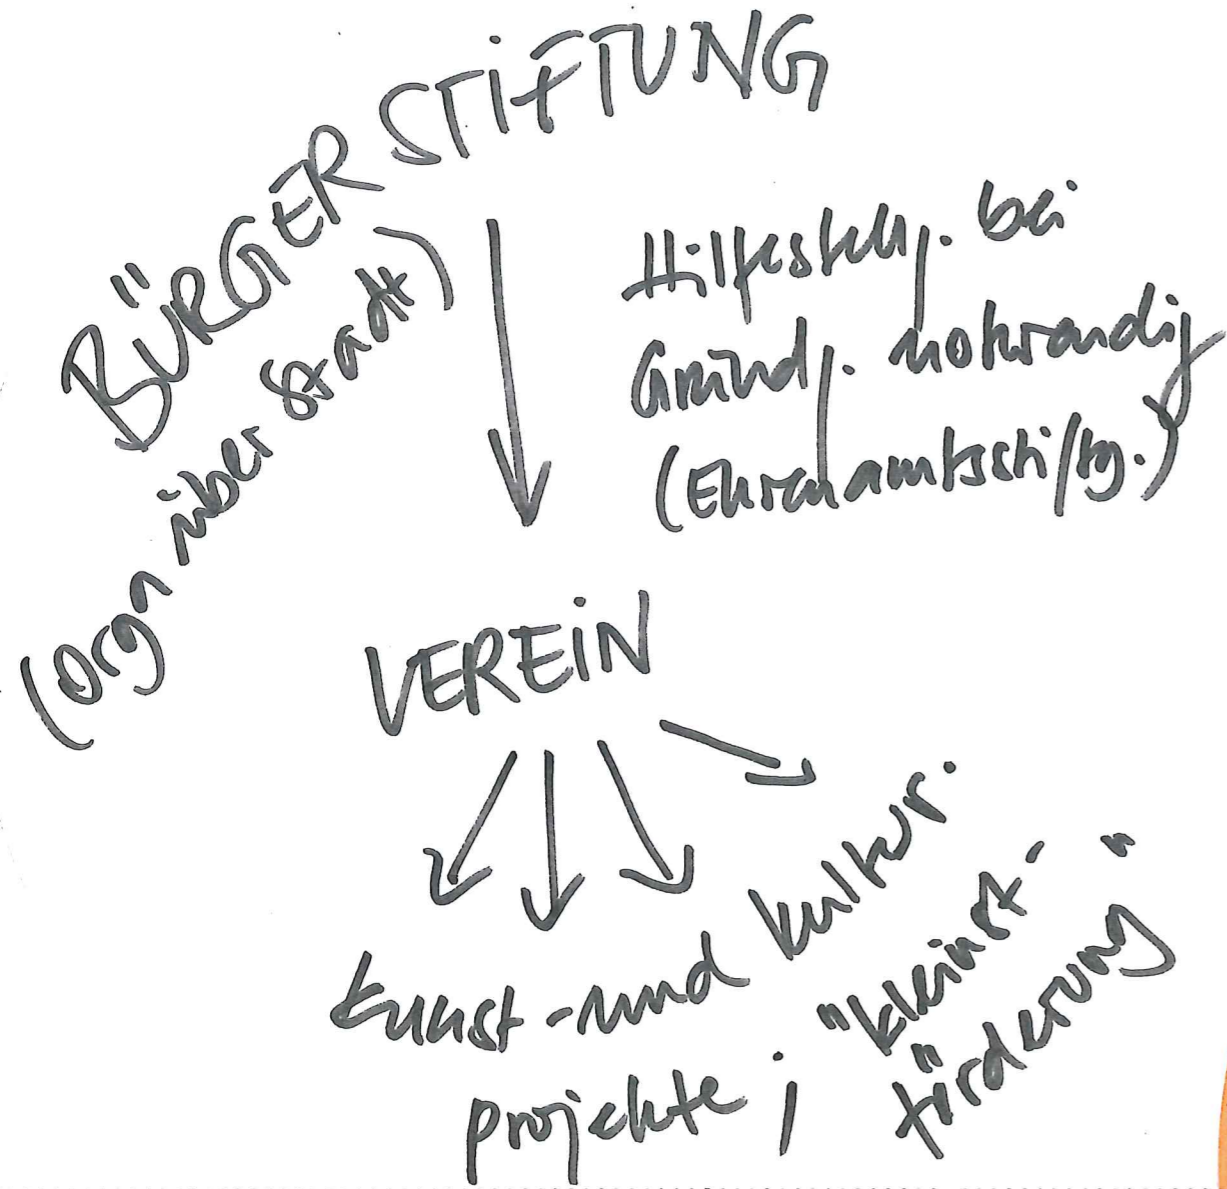 BÜRGERSTIFTUNG
(Orga über Stadt)
Hilfestellg. bei
Gründg. notwendig
(Ehrenamtsstiftg.)
VEREIN
Kunst- und Kultur.
projekte; "Kleinst-
förderung"